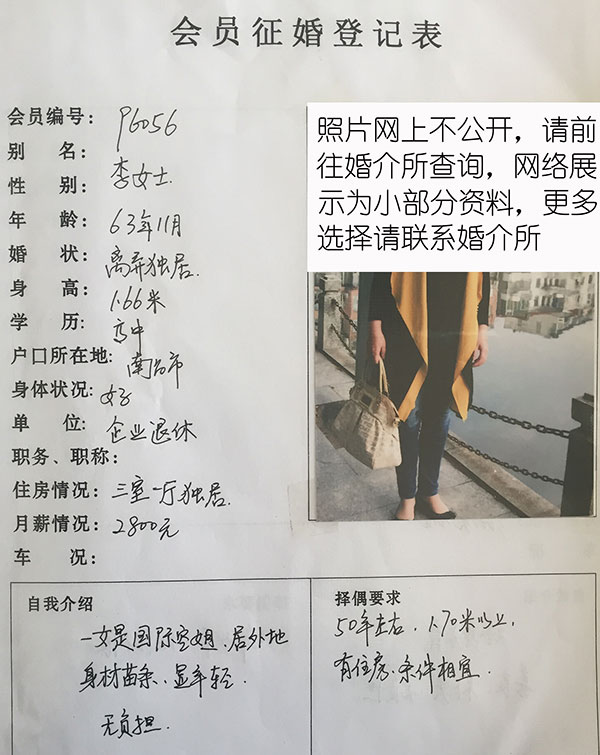 会员征婚登记表
会员编号: P6056
别 名:
性 别: 李女士
年 龄: 63年11月
婚 状: 离异独居.
身 高: 1.66米
学 历: 高中
户口所在地: 南昌市
身体状况: 好
单 位: 企业退休
职务、职称:
住房情况: 三室一厅独居.
月薪情况: 2800元
车 况:
照片网上不公开，请前
往婚介所查询，网络展
示为小部分资料，更多
选择请联系婚介所
自我介绍
一女是国际空姐、居外地
身材苗条、显年轻.
无负担.
择偶要求
50年左右.1.70米以上.
有住房、条件相宜.